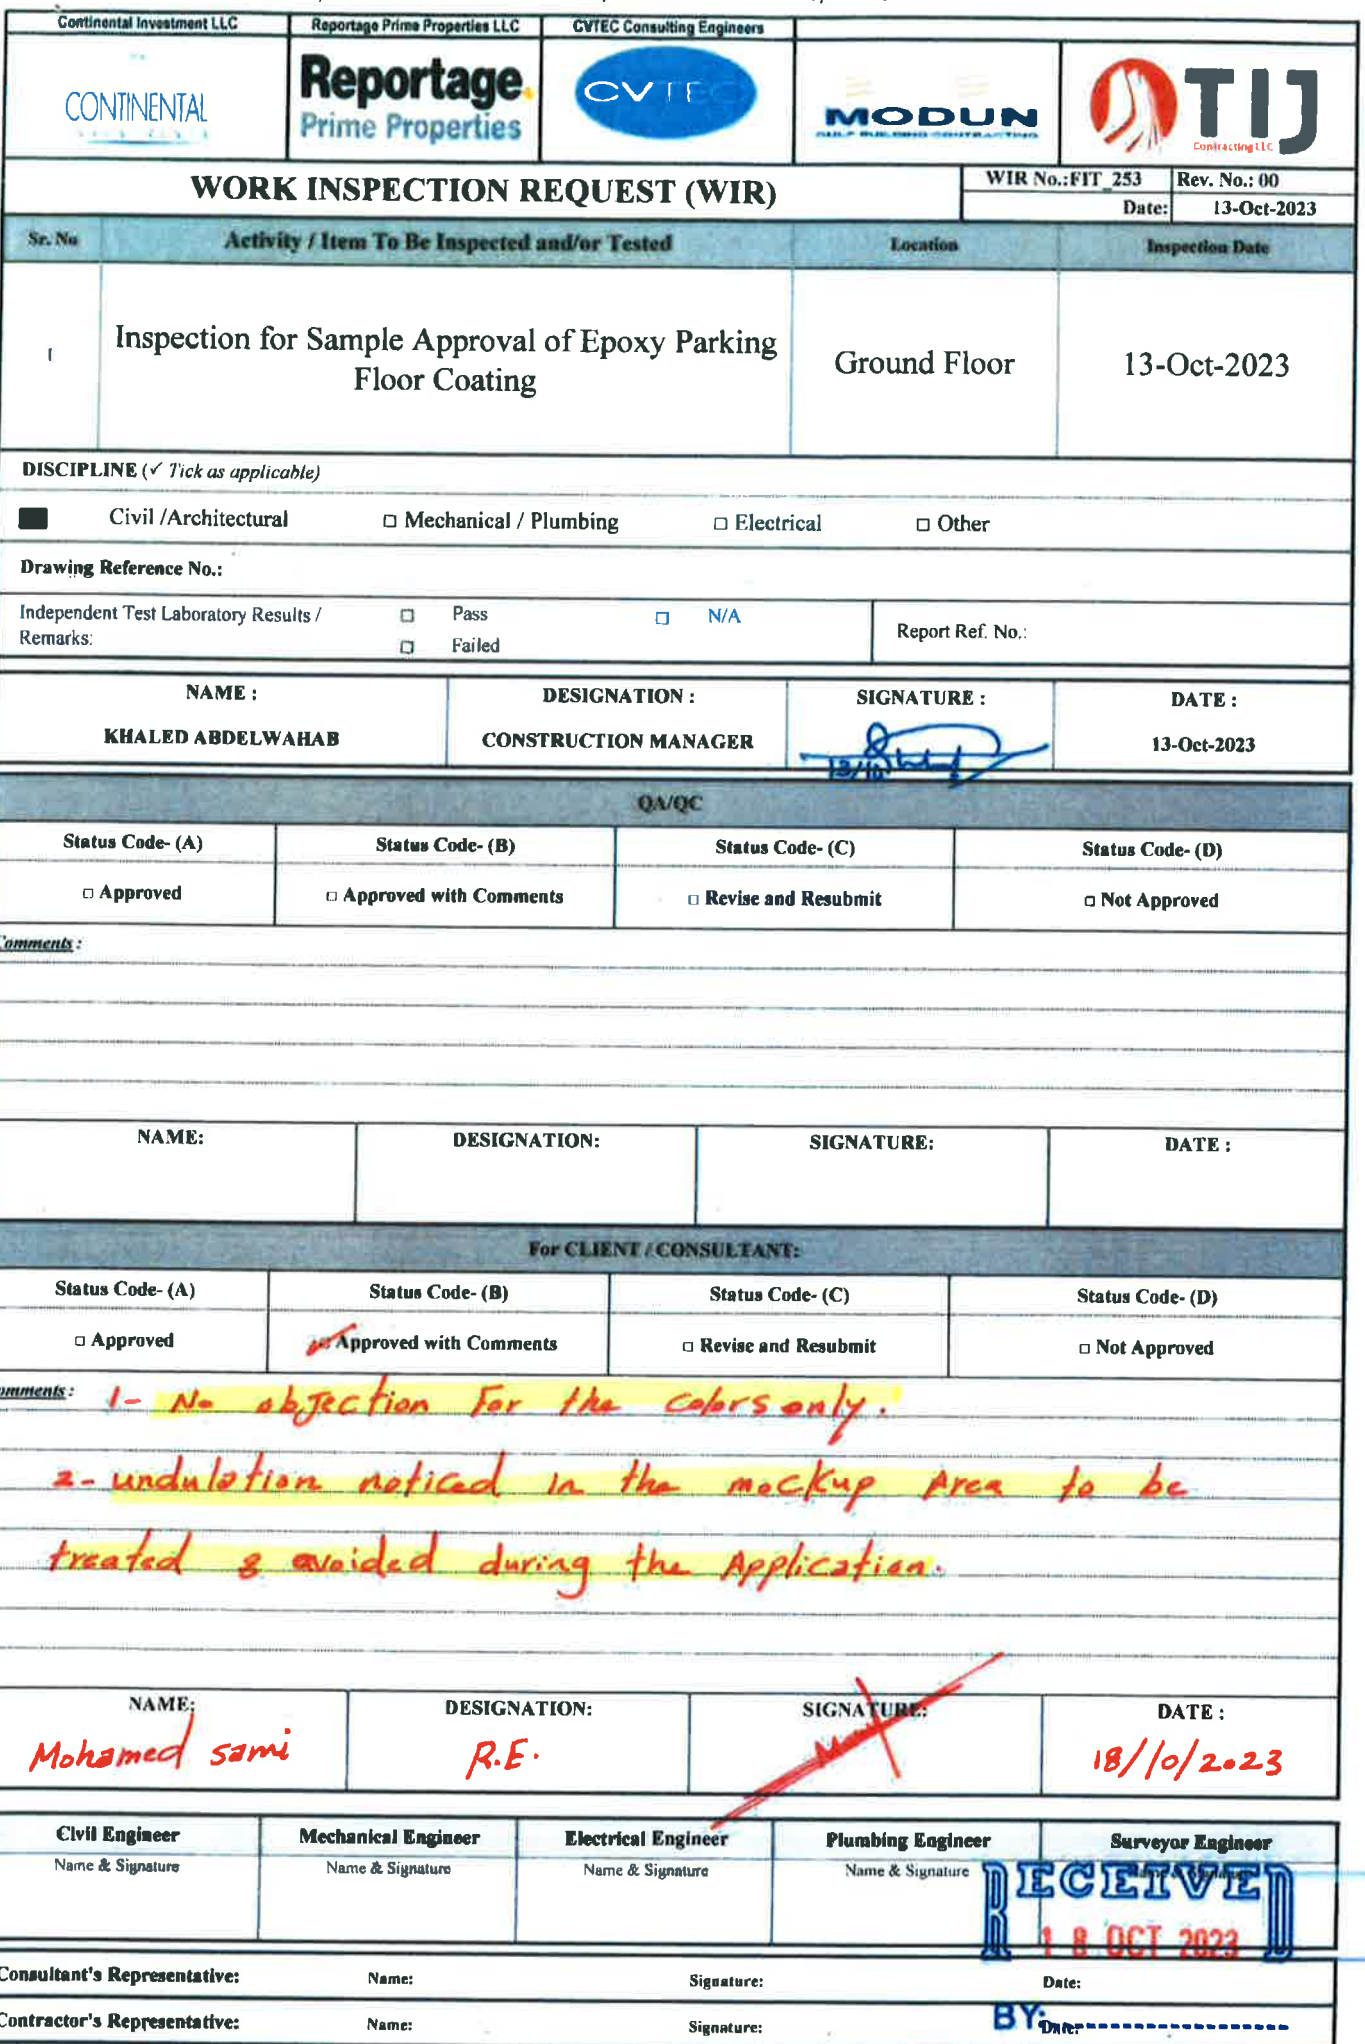 Continental Investment LLC
Reportage Prime Properties LLC
CVTEC Consulting Engineers
CONTINENTAL
Reportage.
Prime Properties
CVTEC
MODUN
GULF BUILDING CONTRACTING
TIJ
Contracting LLC
WORK INSPECTION REQUEST (WIR)
WIR No.:FIT_253
Rev. No.: 00
Date:
13-Oct-2023
Sr. No
Activity / Item To Be Inspected and/or Tested
Location
Inspection Date
1
Inspection for Sample Approval of Epoxy Parking
Floor Coating
Ground Floor
13-Oct-2023
DISCIPLINE (✓ Tick as applicable)
Civil /Architectural
□ Mechanical / Plumbing
□ Electrical
□ Other
Drawing Reference No.:
Independent Test Laboratory Results /
Remarks:
□ Pass
□ N/A
□ Failed
Report Ref. No.:
NAME :
DESIGNATION :
SIGNATURE :
DATE :
KHALED ABDELWAHAB
CONSTRUCTION MANAGER
13/10
13-Oct-2023
QA/QC
Status Code- (A)
Status Code- (B)
Status Code- (C)
Status Code- (D)
□ Approved
□ Approved with Comments
□ Revise and Resubmit
□ Not Approved
Comments :
NAME:
DESIGNATION:
SIGNATURE:
DATE :
For CLIENT / CONSULTANT:
Status Code- (A)
Status Code- (B)
Status Code- (C)
Status Code- (D)
□ Approved
Approved with Comments
□ Revise and Resubmit
□ Not Approved
omments :
1- No objection For the colors only.
2- undulation noticed in the mockup Area to be
treated & avoided during the Application.
NAME:
DESIGNATION:
SIGNATURE:
DATE :
Mohamed sami
R.E.
18/10/2023
Civil Engineer
Mechanical Engineer
Electrical Engineer
Plumbing Engineer
Surveyor Engineer
Name & Signature
Name & Signature
Name & Signature
Name & Signature
RECEIVED
18 OCT 2023
Consultant's Representative:
Name:
Signature:
Date:
Contractor's Representative:
Name:
Signature:
BY:
Date: